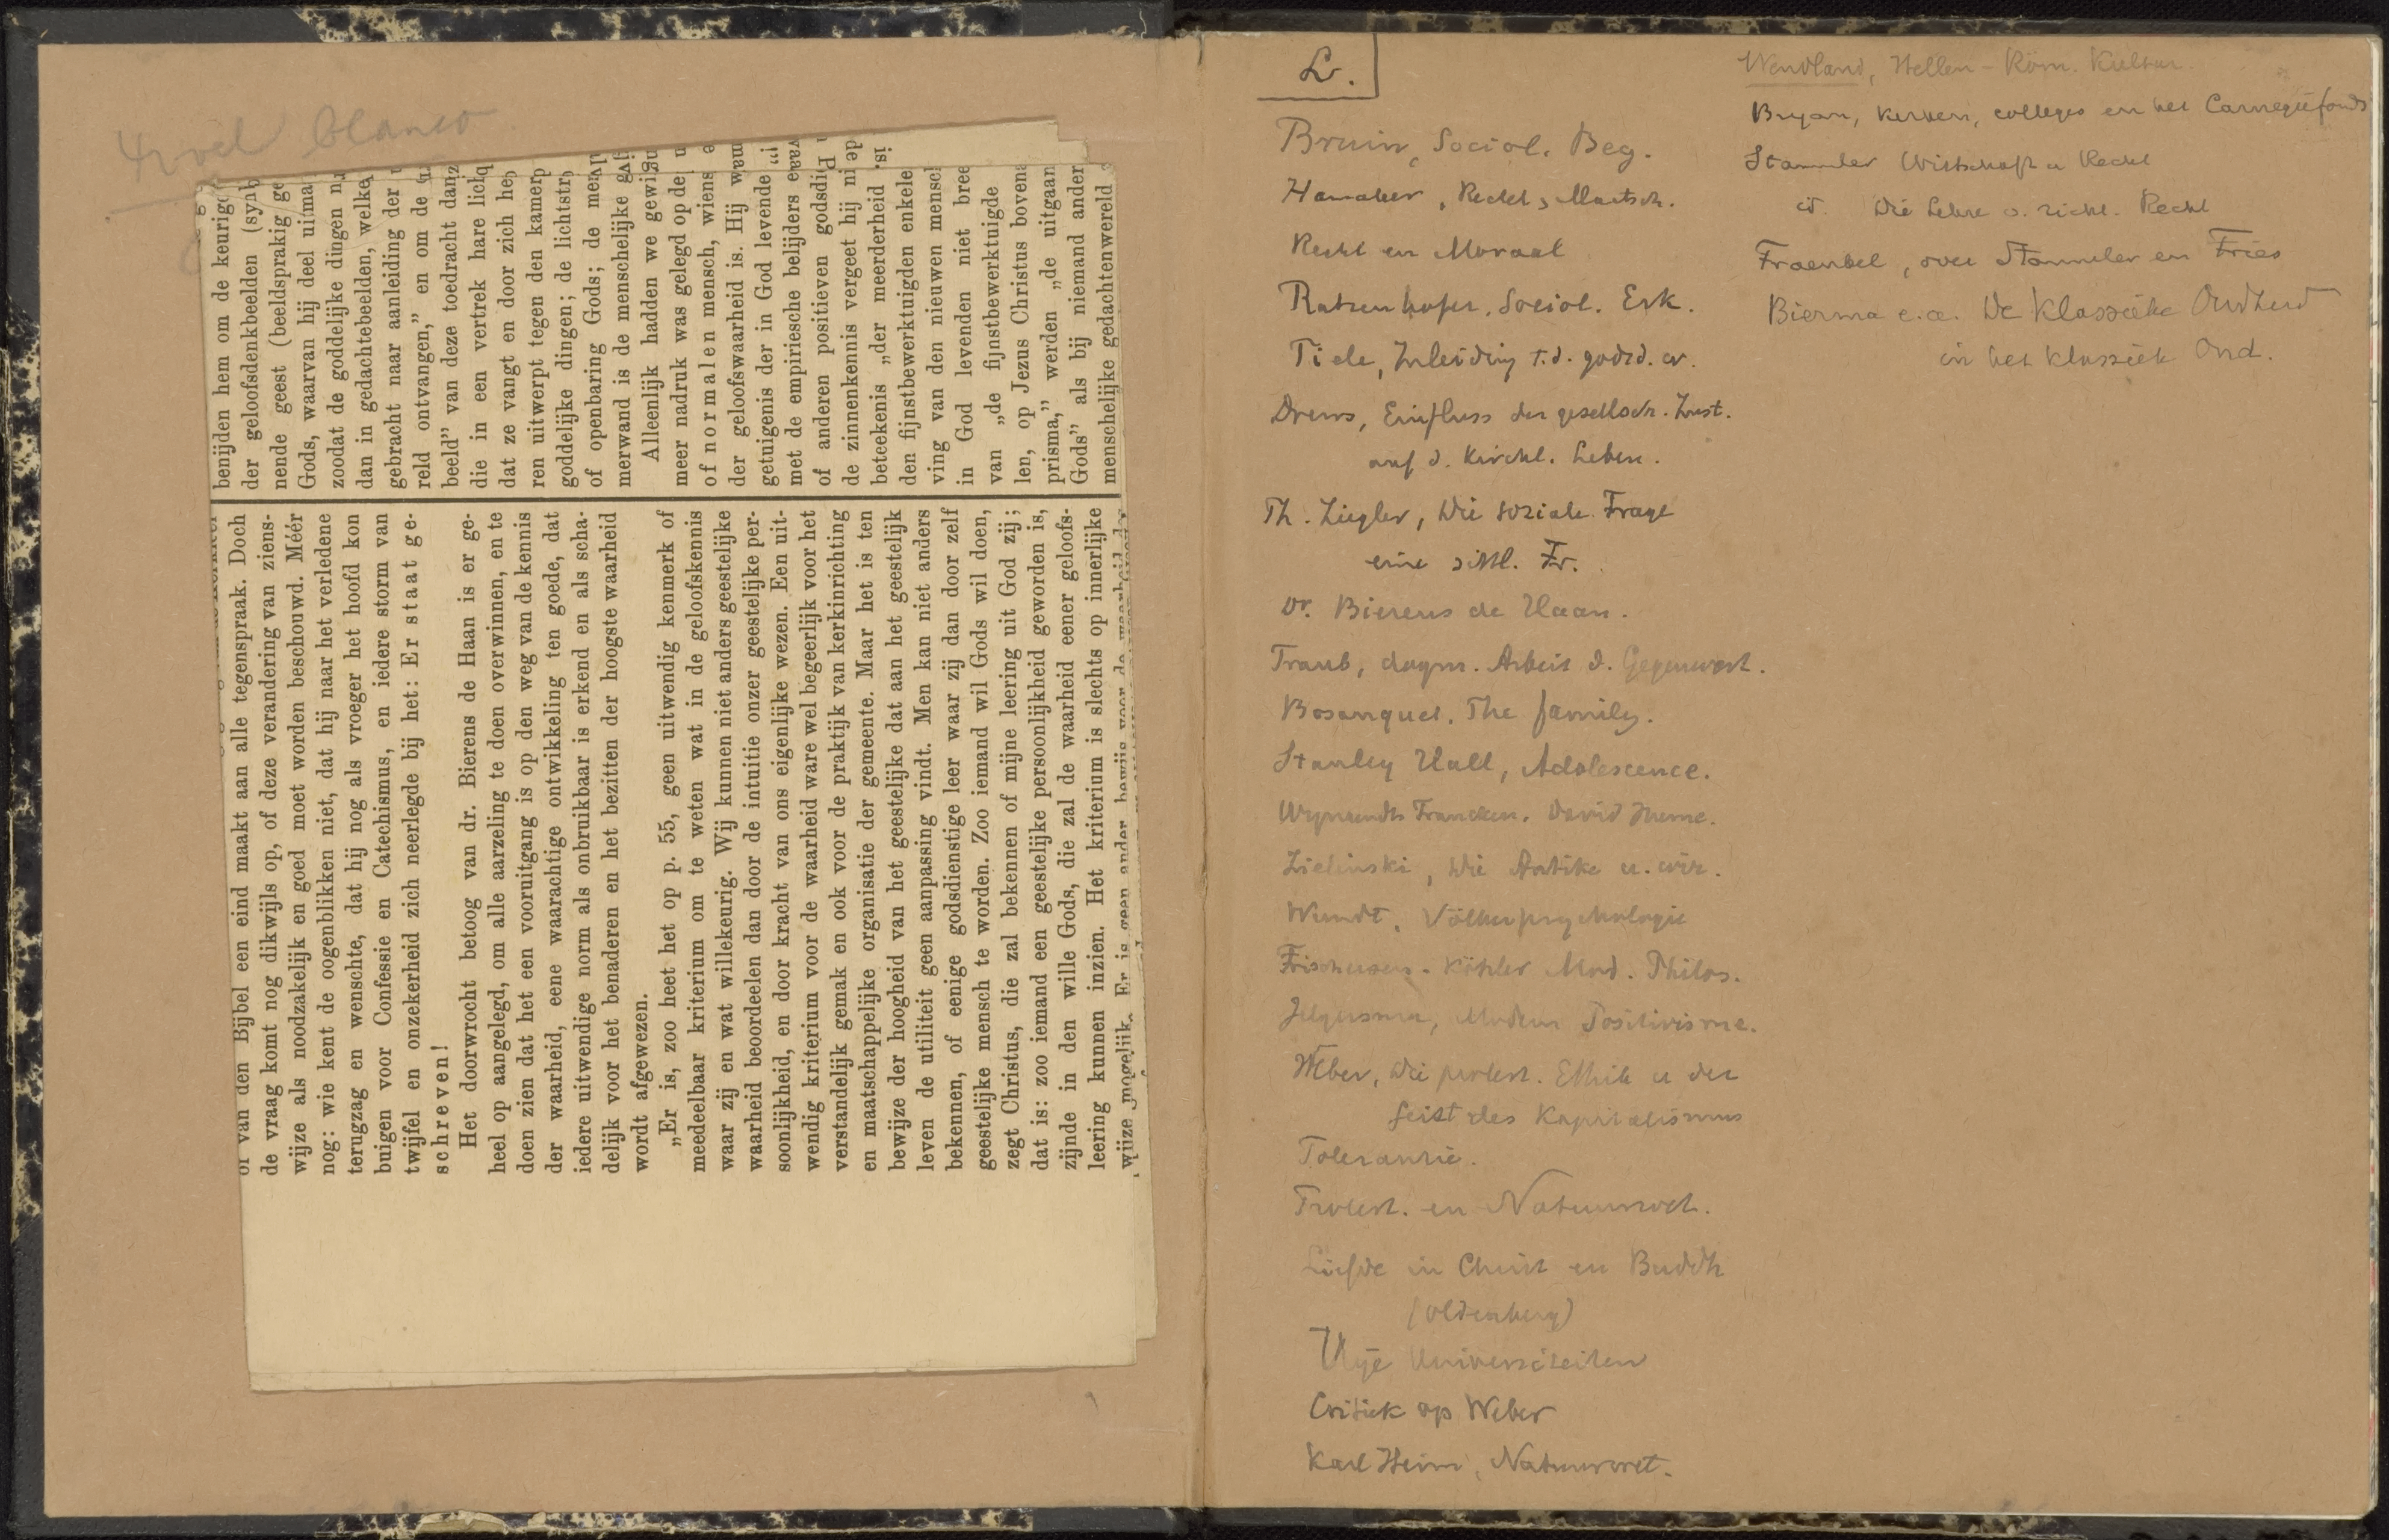 4 vel blanco
benijden hem om de keurige
der geloofsdenkbeelden (symb
nende geest (beeldsprakig ge
Gods, waarvan hij deel uitma
zoodat de goddelijke dingen
dan in gedachtebeelden, welke
gebracht naar aanleiding der
reld ontvangen,” en om de
beeld” van deze toedracht dan
die in een vertrek hare
dat ze vangt en door zich he
ren uitwerpt tegen den kamer
goddelijke dingen; de lichtstr
of openbaring Gods; de
merwand is de menschelijke
Alleenlijk hadden we
meer nadruk was gelegd op de
of normalen mensch, wiens
der geloofswaarheid is. Hij
getuigenis der in God levende
met de empiriesche belijders
of anderen positieven
de zinnenkennis vergeet hij
beteekenis „der meerderheid
den fijnstbewerktuigden enkele
ving van den nieuwen mensc
in God levenden niet
van „de fijnstbewerktuigde
len, op Jezus Christus boven
prisma,” werden „de uitgaan
Gods” als bij niemand ander
menschelijke gedachtenwereld
of van den Bijbel een eind maakt aan alle tegenspraak. Doch
de vraag komt nog dikwijls op, of deze verandering van ziens-
wijze als noodzakelijk en goed moet worden beschouwd. Méér
nog: wie kent de oogenblikken niet, dat hij naar het verledene
terugzag en wenschte, dat hij nog als vroeger het hoofd kon
buigen voor Confessie en Catechismus, en iedere storm van
twijfel en onzekerheid zich neerlegde bij het: Er staat ge-
schreven!
Het doorwrocht betoog van dr. Bierens de Haan is er ge-
heel op aangelegd, om alle aarzeling te doen overwinnen, en te
doen zien dat het een vooruitgang is op den weg van de kennis
der waarheid, eene waarachtige ontwikkeling ten goede, dat
iedere uitwendige norm als onbruikbaar is erkend en als scha-
delijk voor het benaderen en het bezitten der hoogste waarheid
wordt afgewezen.
„Er is, zoo heet het op p. 55, geen uitwendig kenmerk of
meedeelbaar kriterium om te weten wat in de geloofskennis
waar zij en wat willekeurig. Wij kunnen niet anders geestelijke
waarheid beoordeelen dan door de intuitie onzer geestelijke per-
soonlijkheid, en door kracht van ons eigenlijke wezen. Een uit-
wendig kriterium voor de waarheid ware wel begeerlijk voor het
verstandelijk gemak en ook voor de praktijk van kerkinrichting
en maatschappelijke organisatie der gemeente. Maar het is ten
bewijze der hoogheid van het geestelijke dat aan het geestelijk
leven de utiliteit geen aanpassing vindt. Men kan niet anders
bekennen, of eenige godsdienstige leer waar zij dan door zelf
geestelijke mensch te worden. Zoo iemand wil Gods wil doen,
zegt Christus, die zal bekennen of mijne leering uit God zij;
dat is: zoo iemand een geestelijke persoonlijkheid geworden is,
zijnde in den wille Gods, die zal de waarheid eener geloofs-
leering kunnen inzien. Het kriterium is slechts op innerlijke
wijze mogelijk. Er is geen ander bewijs voor de waarheid der
L.
Bruin, Sociol. Beg.
Hamaker, Recht, Maatsch.
Recht en Moraal
Ratzenhofer. Sociol. Erk.
Tiele, Inleiding t.d. godsd. w.
Drews, Einfluss der gesellsch. Zust.
auf d. Kirchl. Leben.
Th. Ziegler, Die soziale Frage
eine sittl. Fr.
Dr. Bierens de Haan.
Traub, dogm. Arbeit d. Gegenwart.
Bosanquet. The family.
Stanley Hall, Adolescence.
Wynaendts Francken. David Hume.
Zielinski, Die Antike u. wir.
Wundt. Völkerpsychologie
Frischeisen-Köhler Mod. Philos.
Jelgersma, Modern Positivisme.
Weber, Die protest. Ethik u der
Geist des Kapitalismus
Tolerantie.
Protest. en Natuurrecht.
Liefde in Christ en Buddh
(Oldenberg)
Vrije Universiteiten
Critiek op Weber
Karl Heim, Natuurwet.
Wendland, Hellen-Röm. Kultur.
Bryan, kerken, colleges en het Carnegiefonds
Stammler Wirtschaft u Recht
id. Die Lehre v. richt. Recht
Fraenkel, over Stammler en Fries
Bierma e.a. De Klassieke Oudheid
in het klassiek Ond.